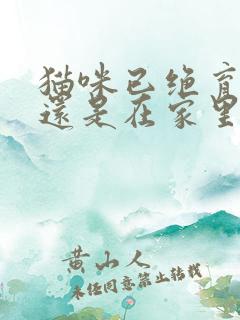 猫咪已绝育
還是在家里
黄山人
未经同意禁止转载